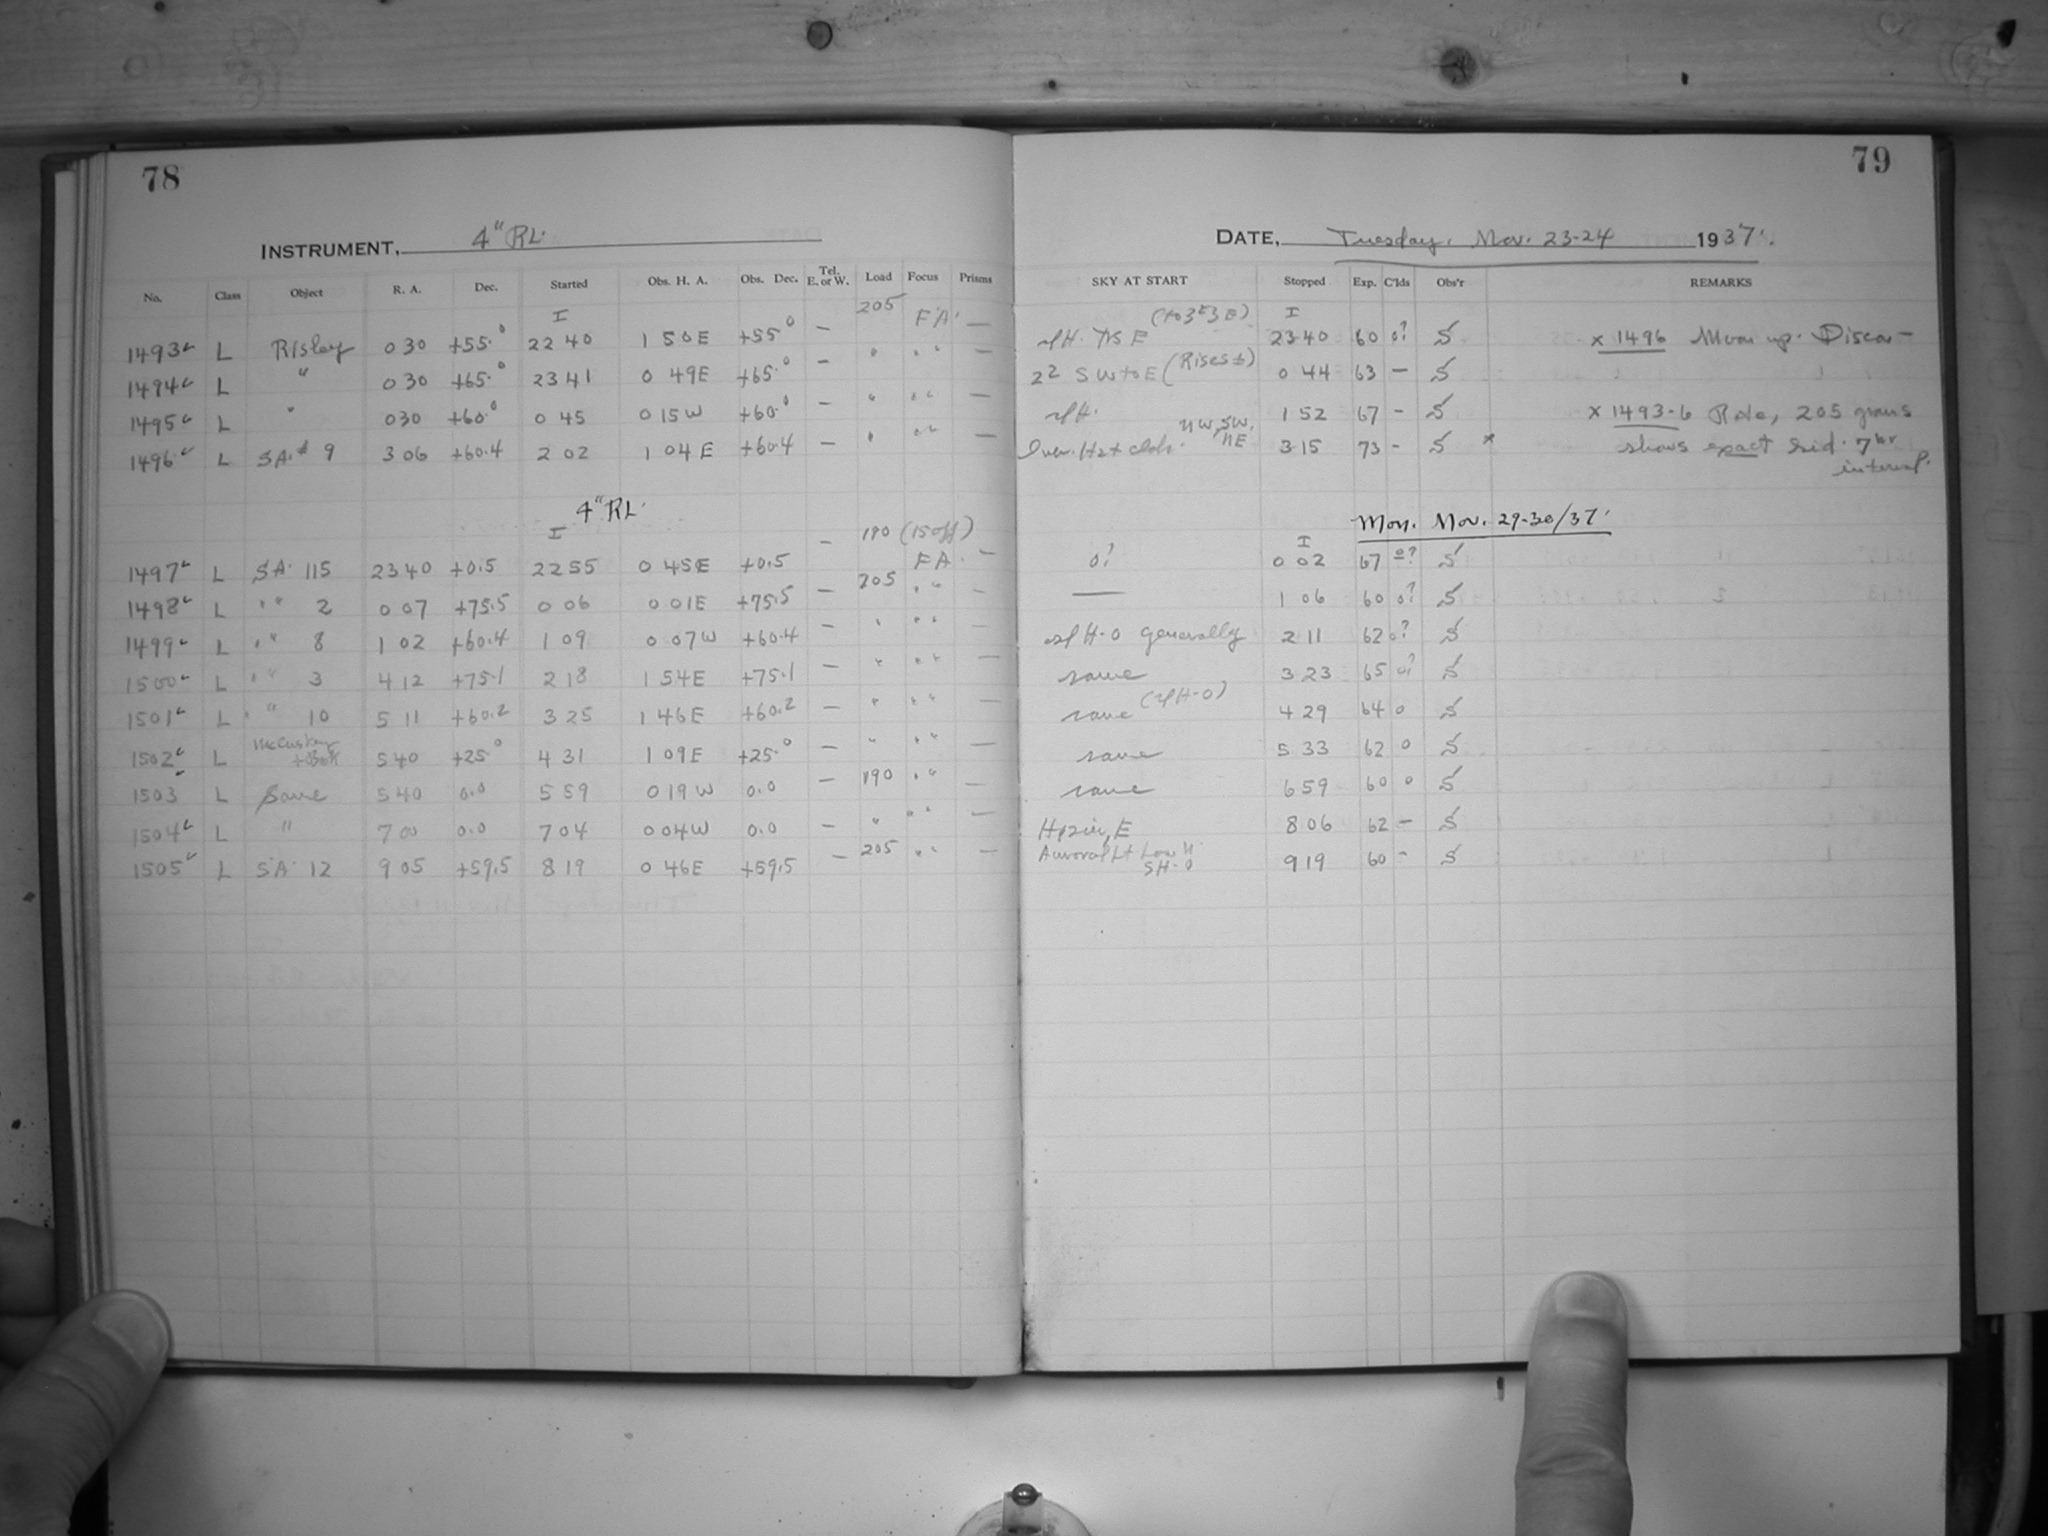 78
INSTRUMENT, 4" RL.
No. Class Object R. A. Dec. Started Obs. H. A. Obs. Dec. Tel. E. or W. Load Focus Prisms
I 205 FA.
1493 L Risley 0 30 +55.° 22 40 1 50E +55° — —
1494 L " 0 30 +65.° 23 41 0 49E +65.° — " " " —
1495 L " 0 30 +60.° 0 45 0 15W +60.° — " " " —
1496 L SA. # 9 3 06 +60.4 2 02 1 04E +60.4 — " " " —
4" RL.
I — 190 (15 off)
1497 L SA. 115 23 40 +0.5 22 55 0 45E +0.5 FA. —
1498 L " " 2 0 07 +75.5 0 06 0 01E +75.5 — 205 " "
1499 L " " 8 1 02 +60.4 1 09 0 07W +60.4 — " " " —
1500 L " " 3 4 12 +75.1 2 18 1 54E +75.1 — " " " —
1501 L " " 10 5 11 +60.2 3 25 1 46E +60.2 — " " " —
1502 L McCuskey 5 40 +25.° 4 31 1 09E +25.° — " " " —
1503 L Same 5 40 0.0 5 59 0 19W 0.0 — 190 " " —
1504 L " 7 00 0.0 7 04 0 04W 0.0 — " " " —
1505 L SA. 12 9 05 +59.5 8 19 0 46E +59.5 — 205 " " —
79
DATE, Tuesday. Nov. 23-24 1937.
SKY AT START Stopped Exp. C'lds Obs'r REMARKS
I
23 40 60 0? S x 1496 Moon up.
22 SW to E (Rises ±) 0 44 63 — S
1 52 67 - S x 1493-6 205 grams
NW, SW, NE 3 15 73 - S x shows exact sid. 7hr
interval.
Mon. Nov. 29-30/37.
I
0? 0 02 67 0? S
— 1 06 60 0? S
H-0 generally 2 11 62 0? S
same 3 23 65 0? S
same 4 29 64 0 S
same 5 33 62 0 S
same 6 59 60 0 S
E 8 06 62 - S
Auroral Lt Low N.
SH-0 9 19 60 - S